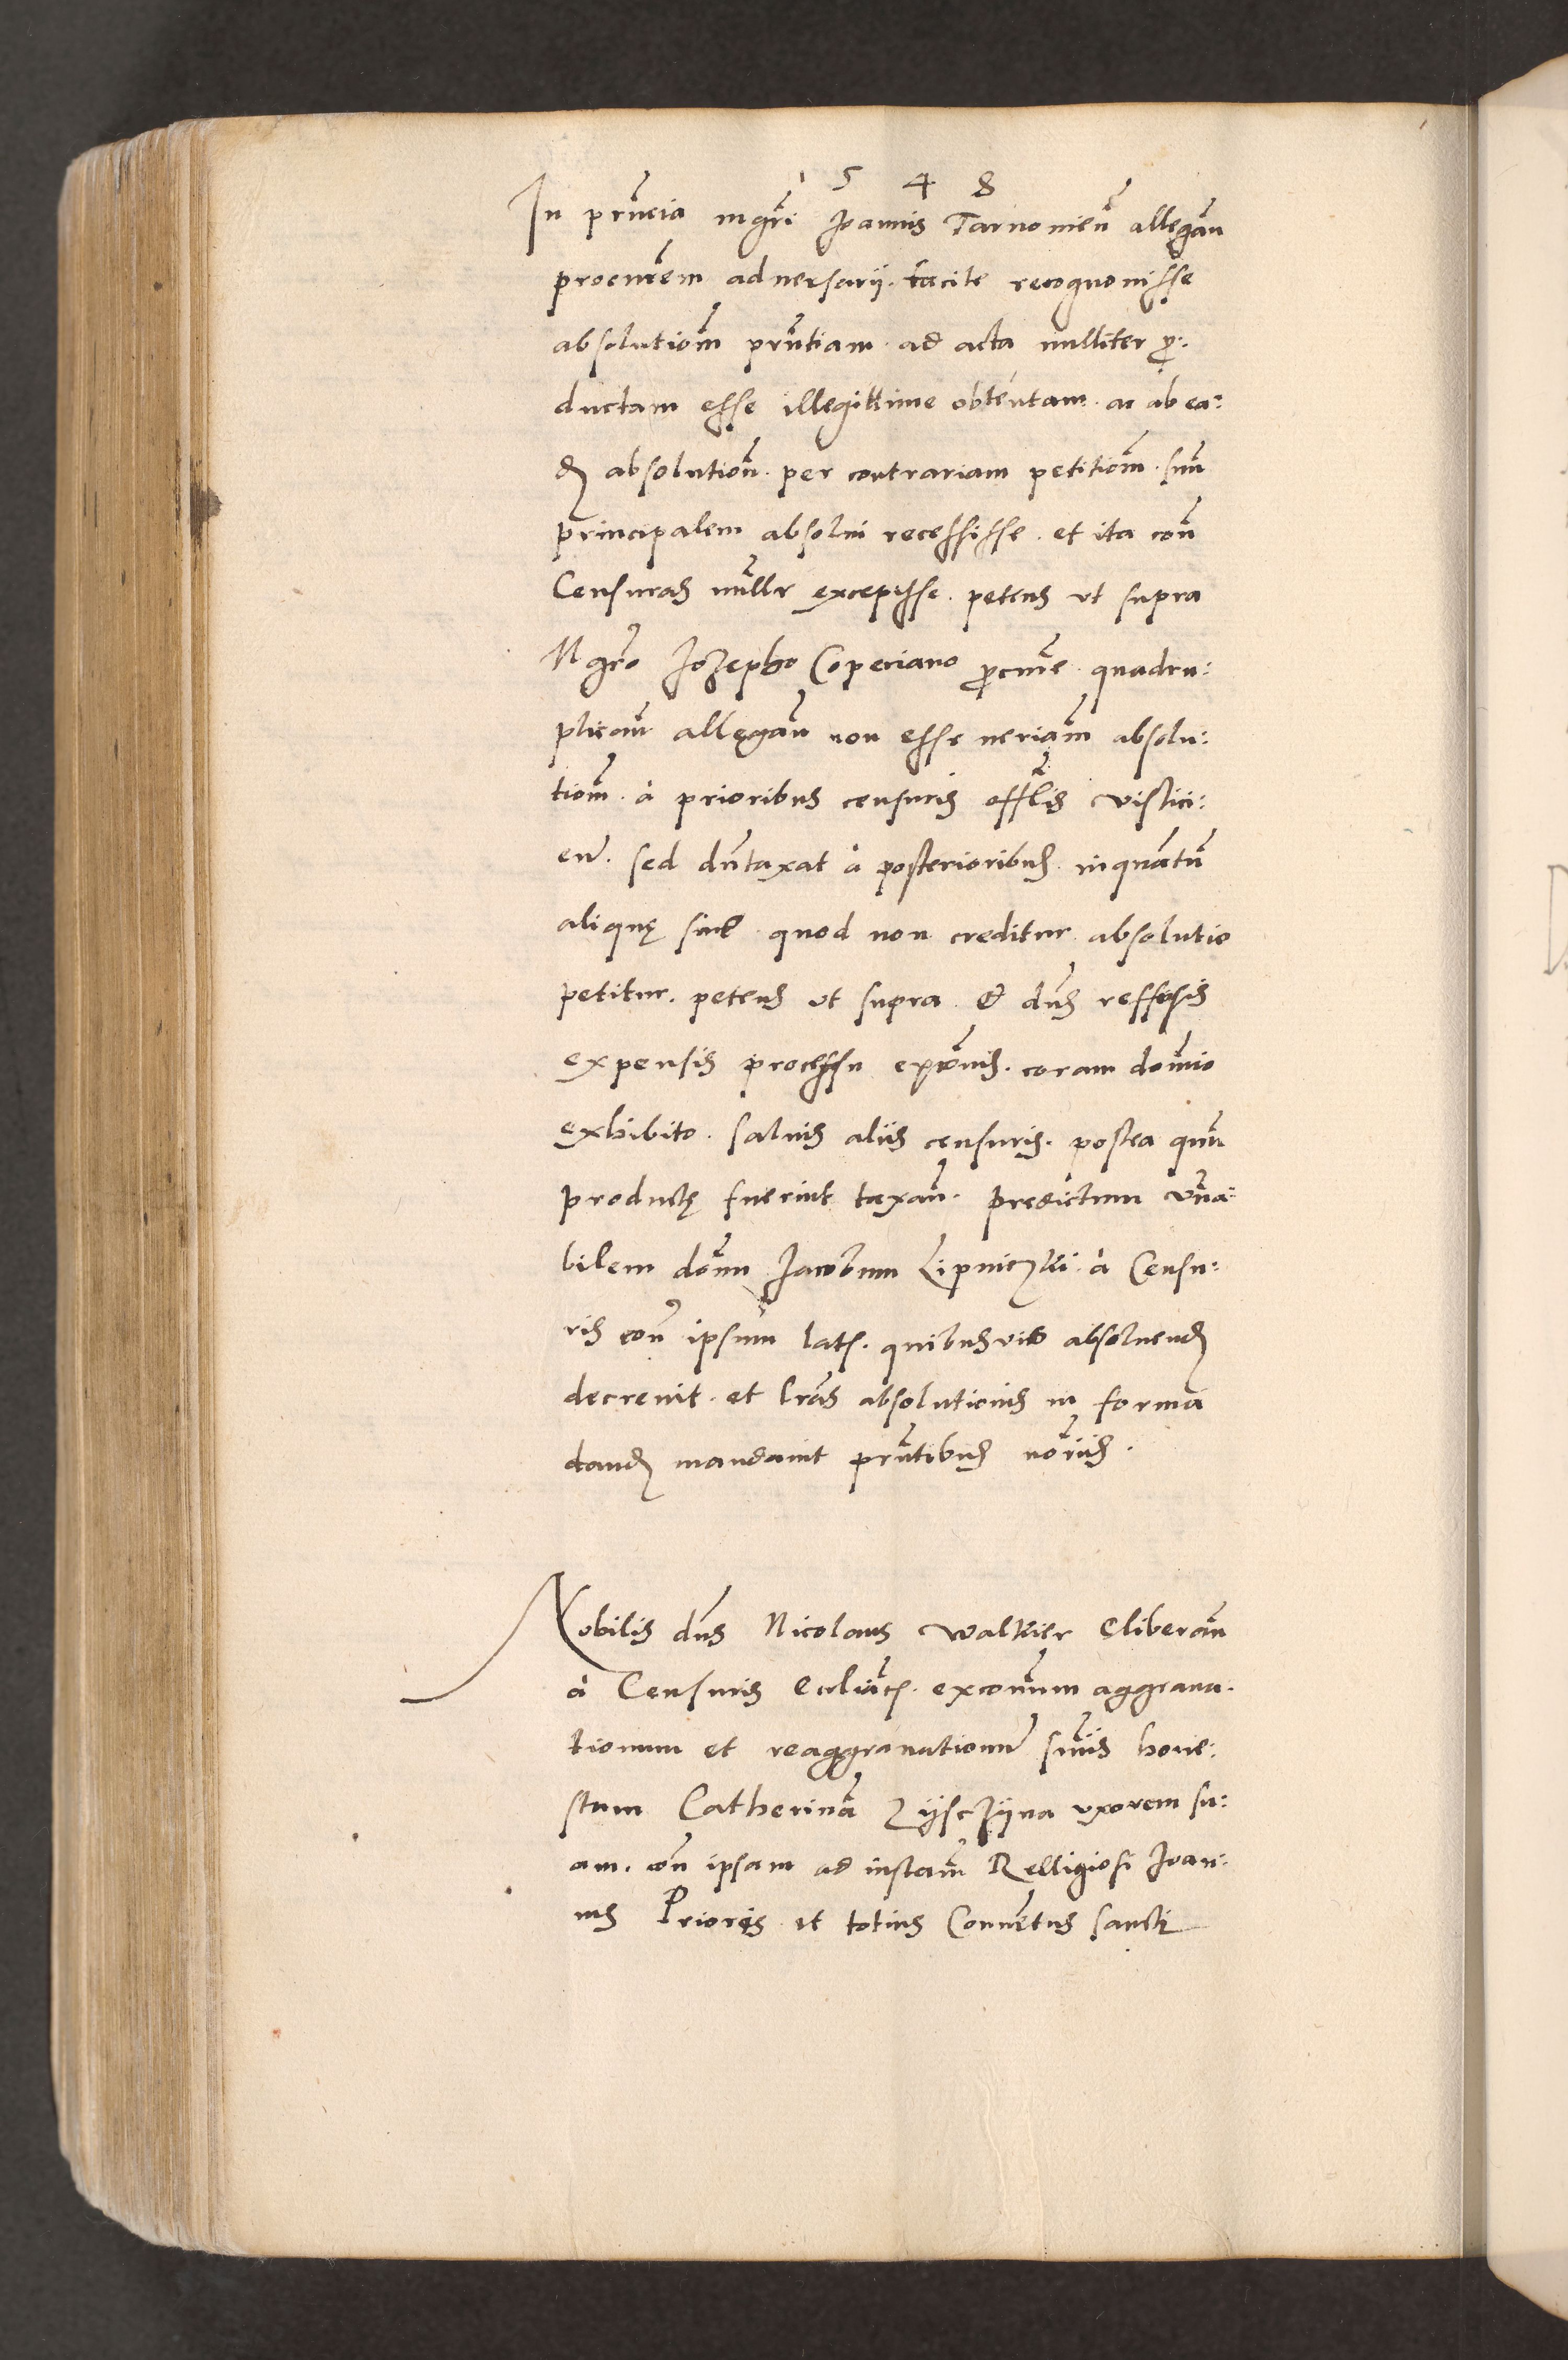 1 5 4 8
In prñcia mgri Joannis Tarnouieñ allegañ
procurem aduersarij. tacite recognouisse
absolutiom prñtiam. ad acta nulliter p̱:
ductam esse illegittime obtentam. ac ab ea:
ꝺ absolutioñ. per contrariam petitiom. suũ
principalem absolui recessisse. et ita coñ
Censuras nullr excepisse. petens vt supra
Mgro Jozepho Coperiano p̱cure. quadru:
plicañ allegañ non esse neriam absolu:
tiom. à prioribus censuris offlis vislici:
eñ. sed duntaxat à posterioribus. inquãtũ
aliquę sint quod non creditur absolutio
petitur. petens vt supra. Et dñs reffusis
expensis processu excõnis. coram domio
exhibito. saluis aliis censuris. postea quũ
productę fuerint taxañ. predictum vña:
bilem domũ Jacobum Lipniczki. à Censu:
ris coñ ipsum latꝭ. quibusuis absoluendꝭ
decreuit. et lras absolutionis in forma
dandꝭ mandauit prñtibus noriis.
Nobilis dñs Nicolaus Waltkier Eliberañ
à Censuris Eccliãtꝭ. exconum aggraua-
tionum et reaggrauationũ suis hone:
stam Catherinã Zijsczijna vxorem su:
am. coñ ipsam ad instam Relligiosi Joan:
nis Prioris et totius Conuẽtus sancti